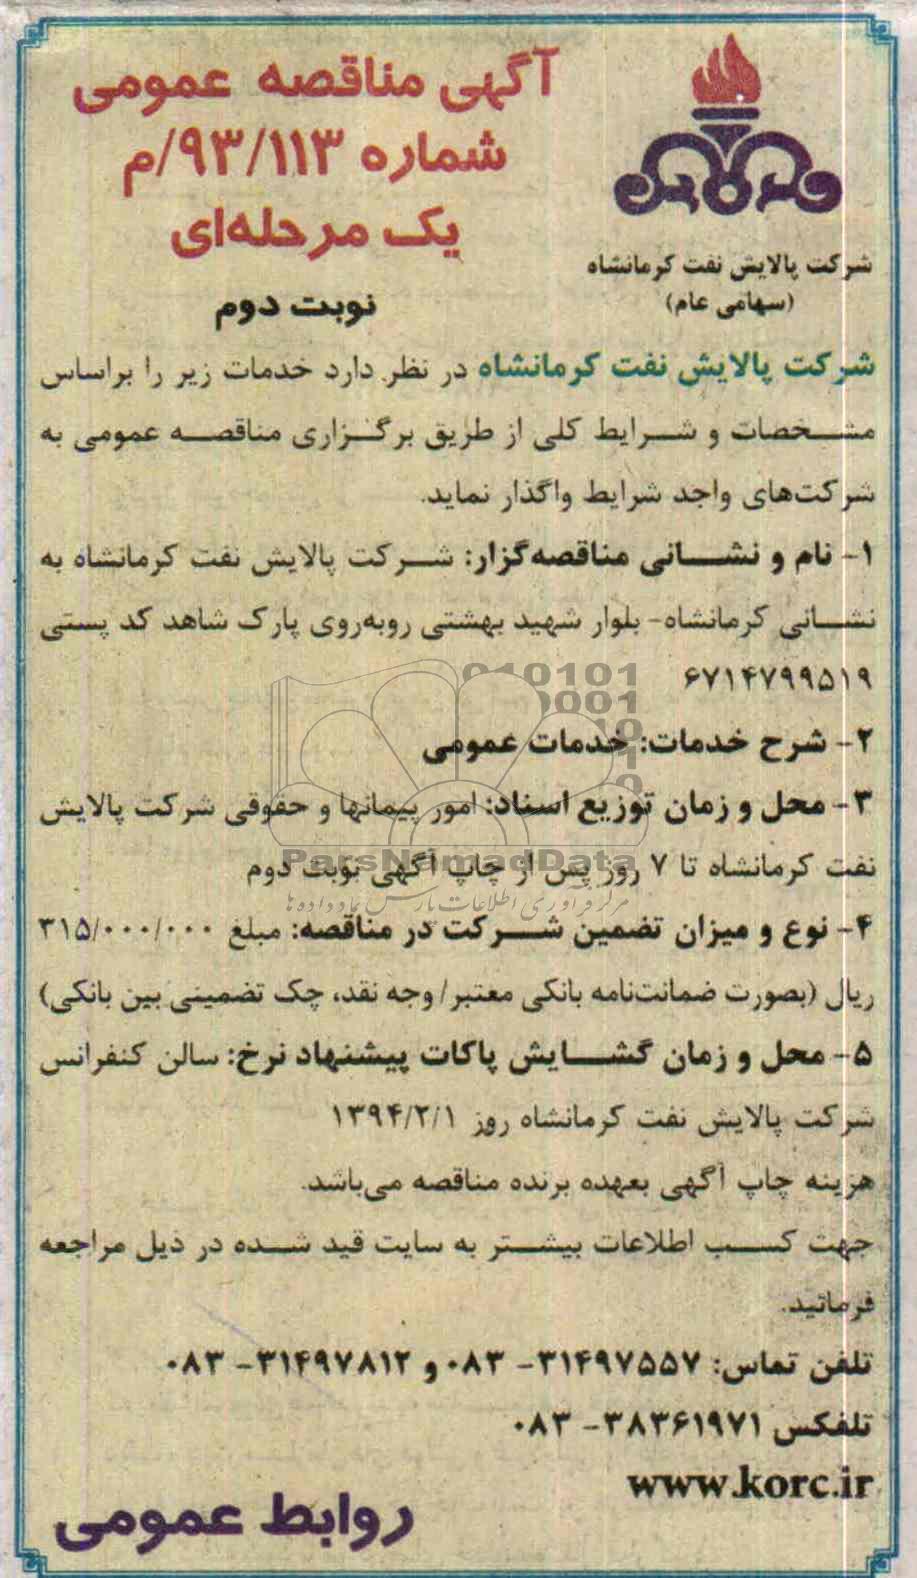 آگهی مناقصه عمومی
شماره ۹۳/۱۱۳/م
یک مرحله‌ای
نوبت دوم
شرکت پالایش نفت کرمانشاه
(سهامی عام)
شرکت پالایش نفت کرمانشاه در نظر دارد خدمات زیر را براساس
مشخصات و شرایط کلی از طریق برگزاری مناقصه عمومی به
شرکت‌های واجد شرایط واگذار نماید.
۱- نام و نشانی مناقصه‌گزار: شرکت پالایش نفت کرمانشاه به
نشانی کرمانشاه- بلوار شهید بهشتی روبه‌روی پارک شاهد کد پستی
۶۷۱۴۷۹۹۵۱۹
۲- شرح خدمات: خدمات عمومی
۳- محل و زمان توزیع اسناد: امور پیمانها و حقوقی شرکت پالایش
نفت کرمانشاه تا ۷ روز پس از چاپ آگهی نوبت دوم
۴- نوع و میزان تضمین شرکت در مناقصه: مبلغ ۳۱۵/۰۰۰/۰۰۰
ریال (بصورت ضمانت‌نامه بانکی معتبر/ وجه نقد، چک تضمینی بین بانکی)
۵- محل و زمان گشایش پاکات پیشنهاد نرخ: سالن کنفرانس
شرکت پالایش نفت کرمانشاه روز ۱۳۹۴/۲/۱
هزینه چاپ آگهی بعهده برنده مناقصه می‌باشد.
جهت کسب اطلاعات بیشتر به سایت قید شده در ذیل مراجعه
فرمائید.
تلفن تماس: ۳۱۴۹۷۵۵۷- ۰۸۳ و ۳۱۴۹۷۸۱۲- ۰۸۳
تلفکس ۳۸۳۶۱۹۷۱- ۰۸۳
www.korc.ir
روابط عمومی
ParsNamadData
مرکز فرآوری اطلاعات پارس نماد داده ها